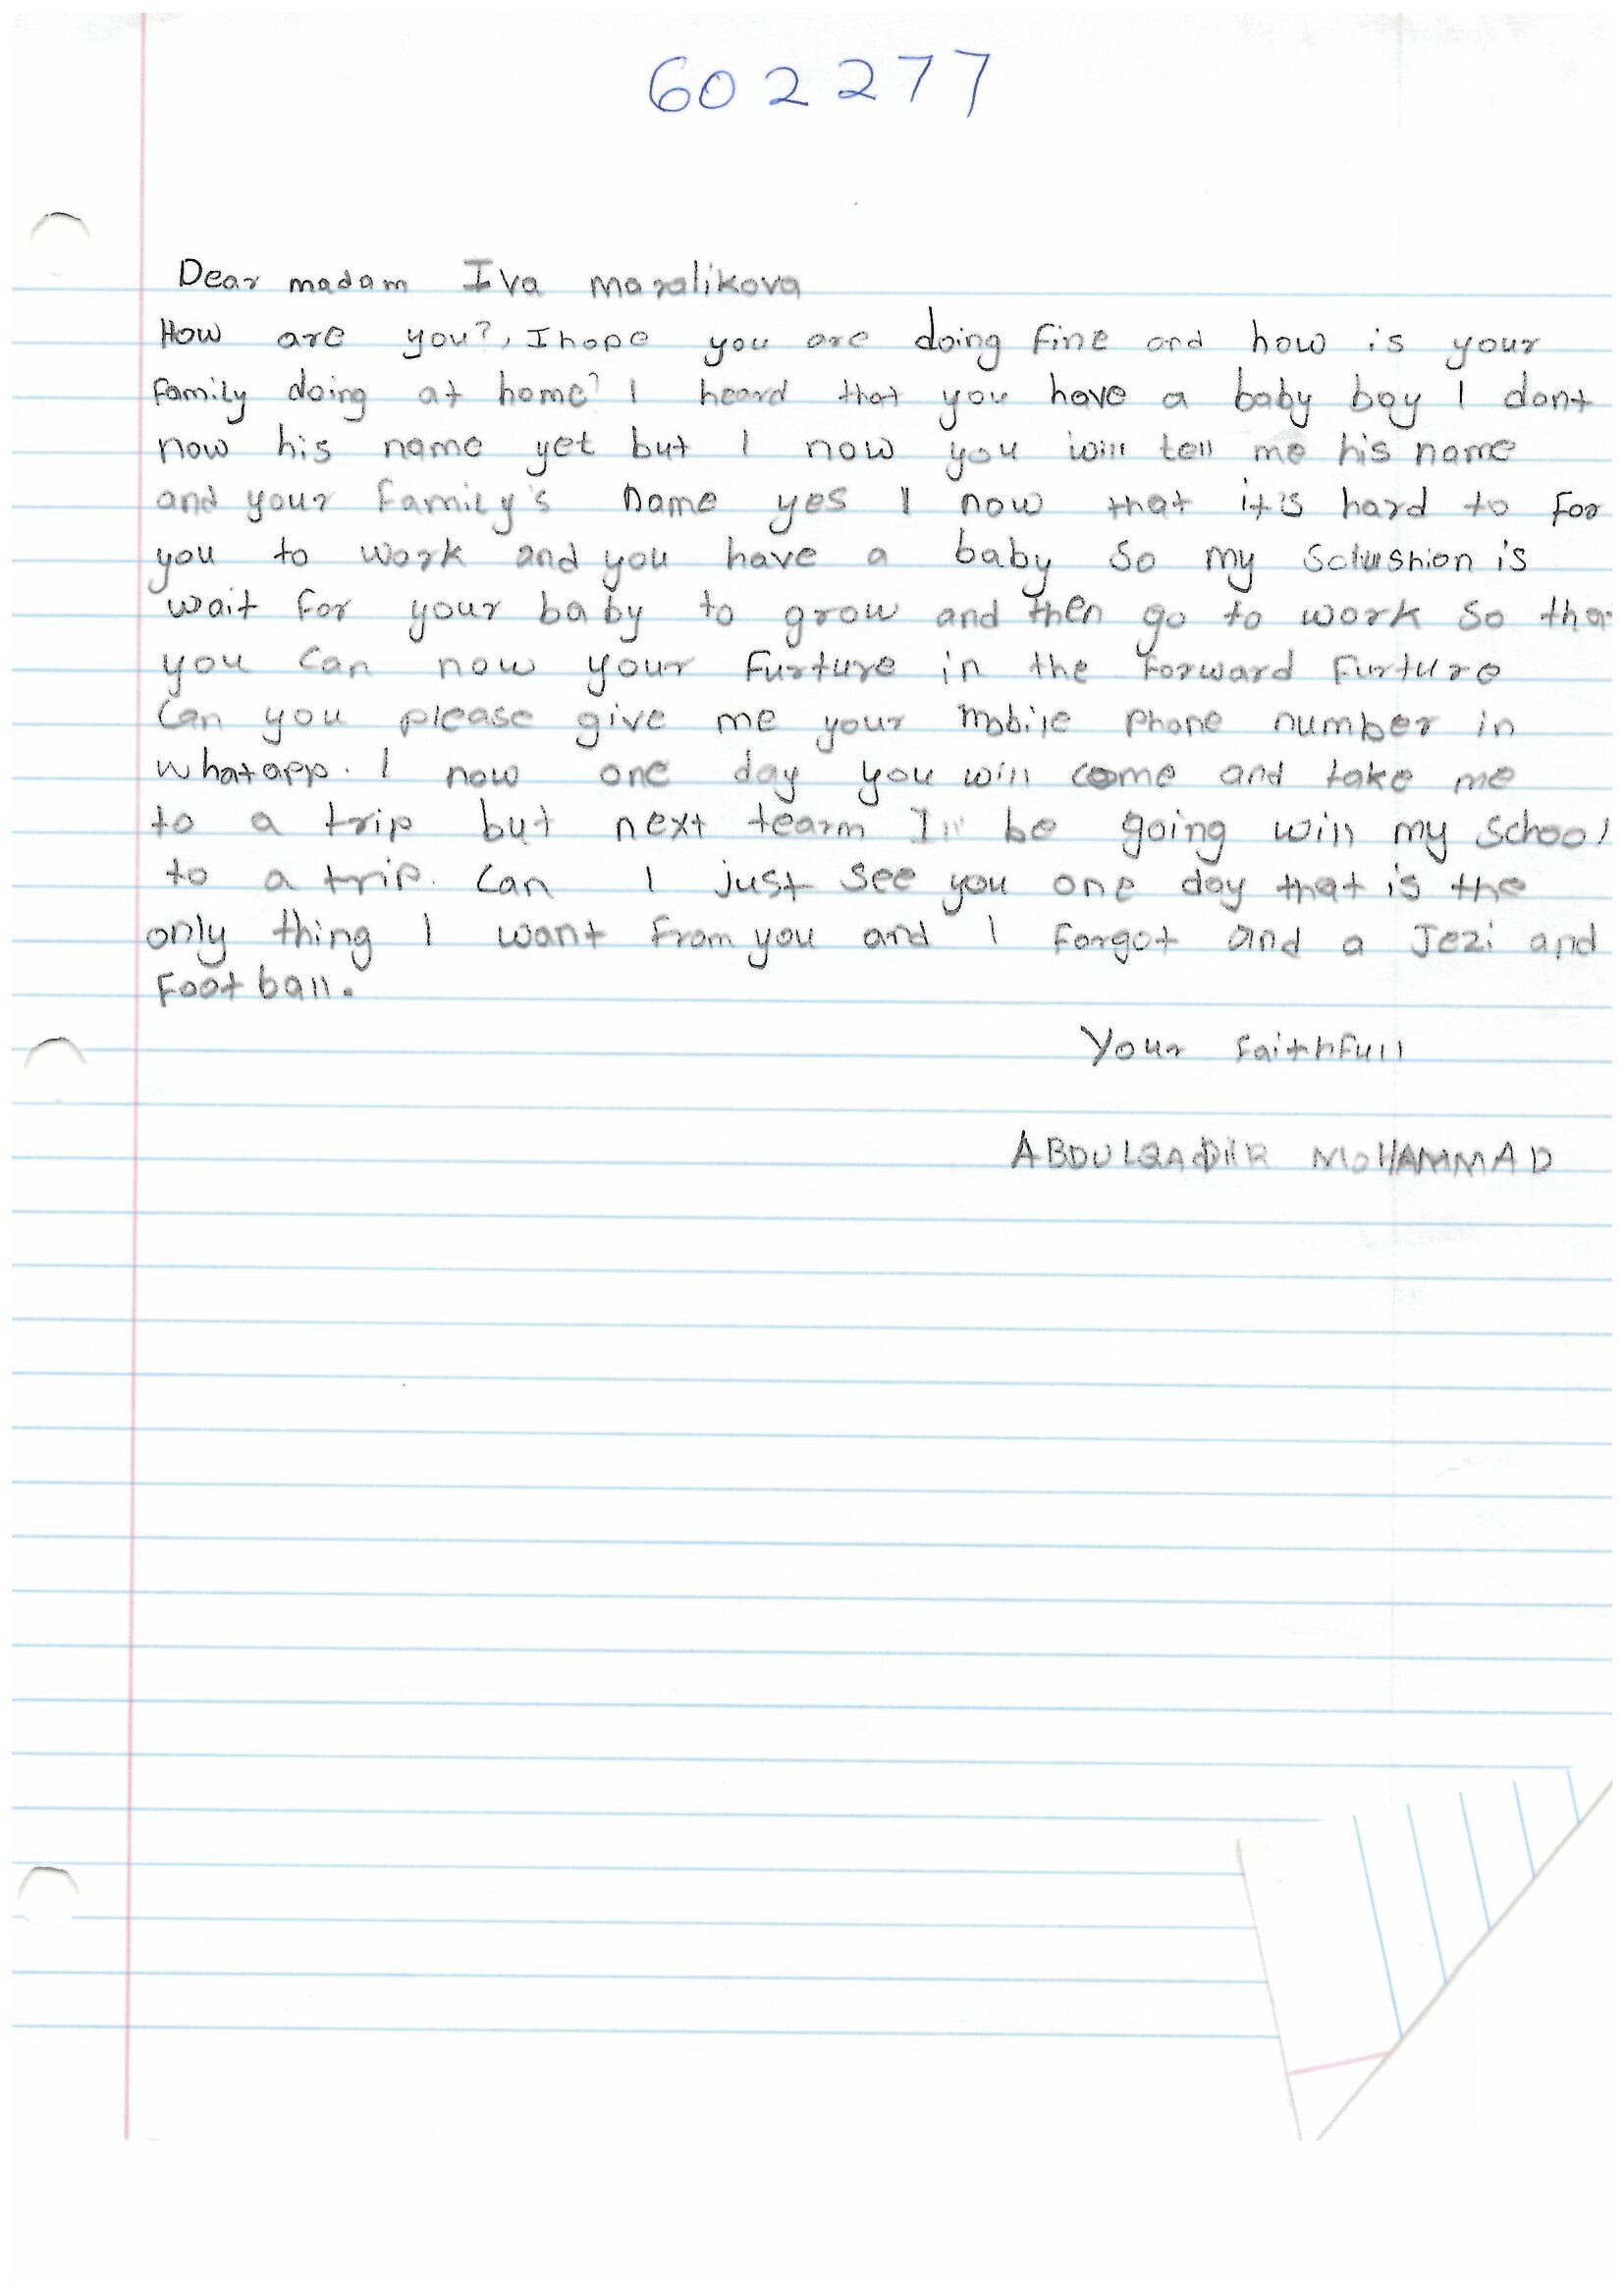 602277
Dear madam Iva maralikova
How are you?, I hope you are doing fine and how is your
family doing at home? I heard that you have a baby boy I dont
now his name yet but I now you will tell me his name
and your family's name yes I now that it's hard to for
you to work and you have a baby so my solushion is
wait for your baby to grow and then go to work so that
you can now your furture in the forward furture
Can you please give me your mobile phone number in
whatapp. I now one day you will come and take me
to a trip but next tearm I'll be going will my school
to a trip. Can I just see you one day that is the
only thing I want from you and I forgot and a Jezi and
football.
Your faithfull
ABDULQADIR MOHAMMAD